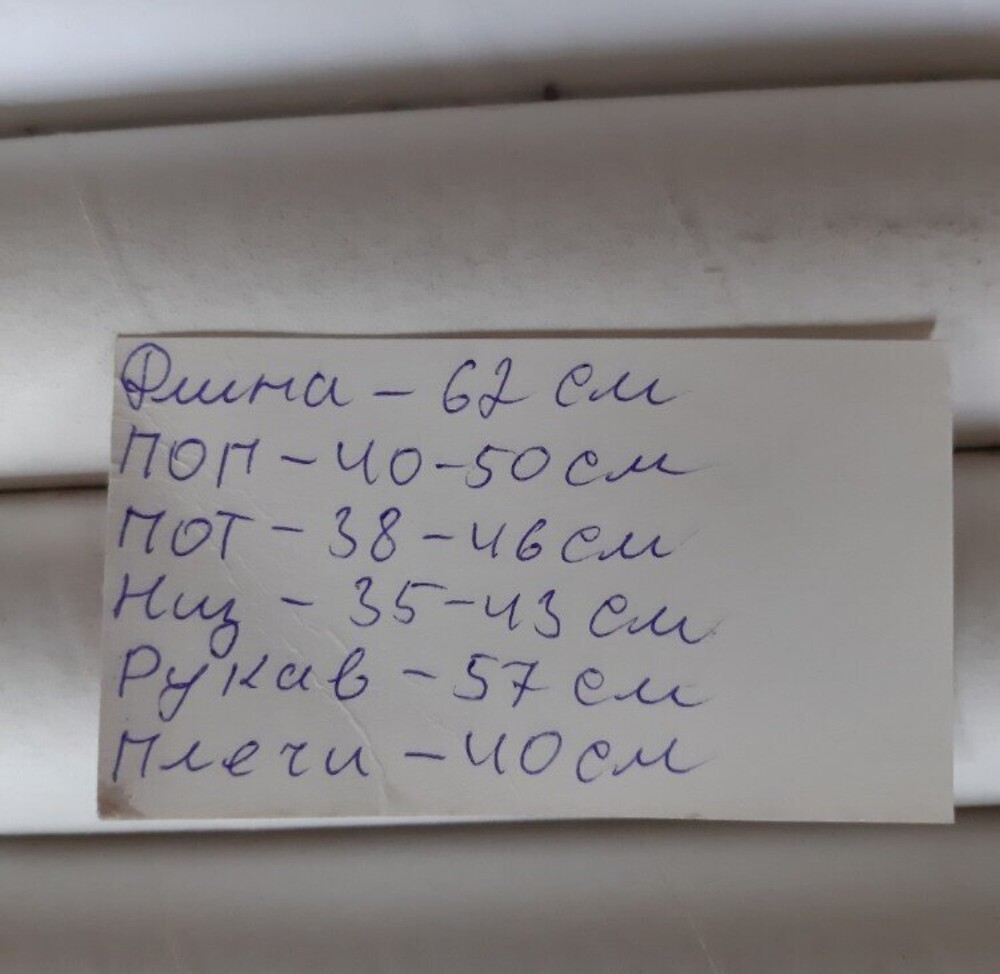 Длина - 62 см
ПОГ - 40-50 см
ПОТ - 38-46 см
Низ - 35-43 см
Рукав - 57 см
Плечи - 40 см